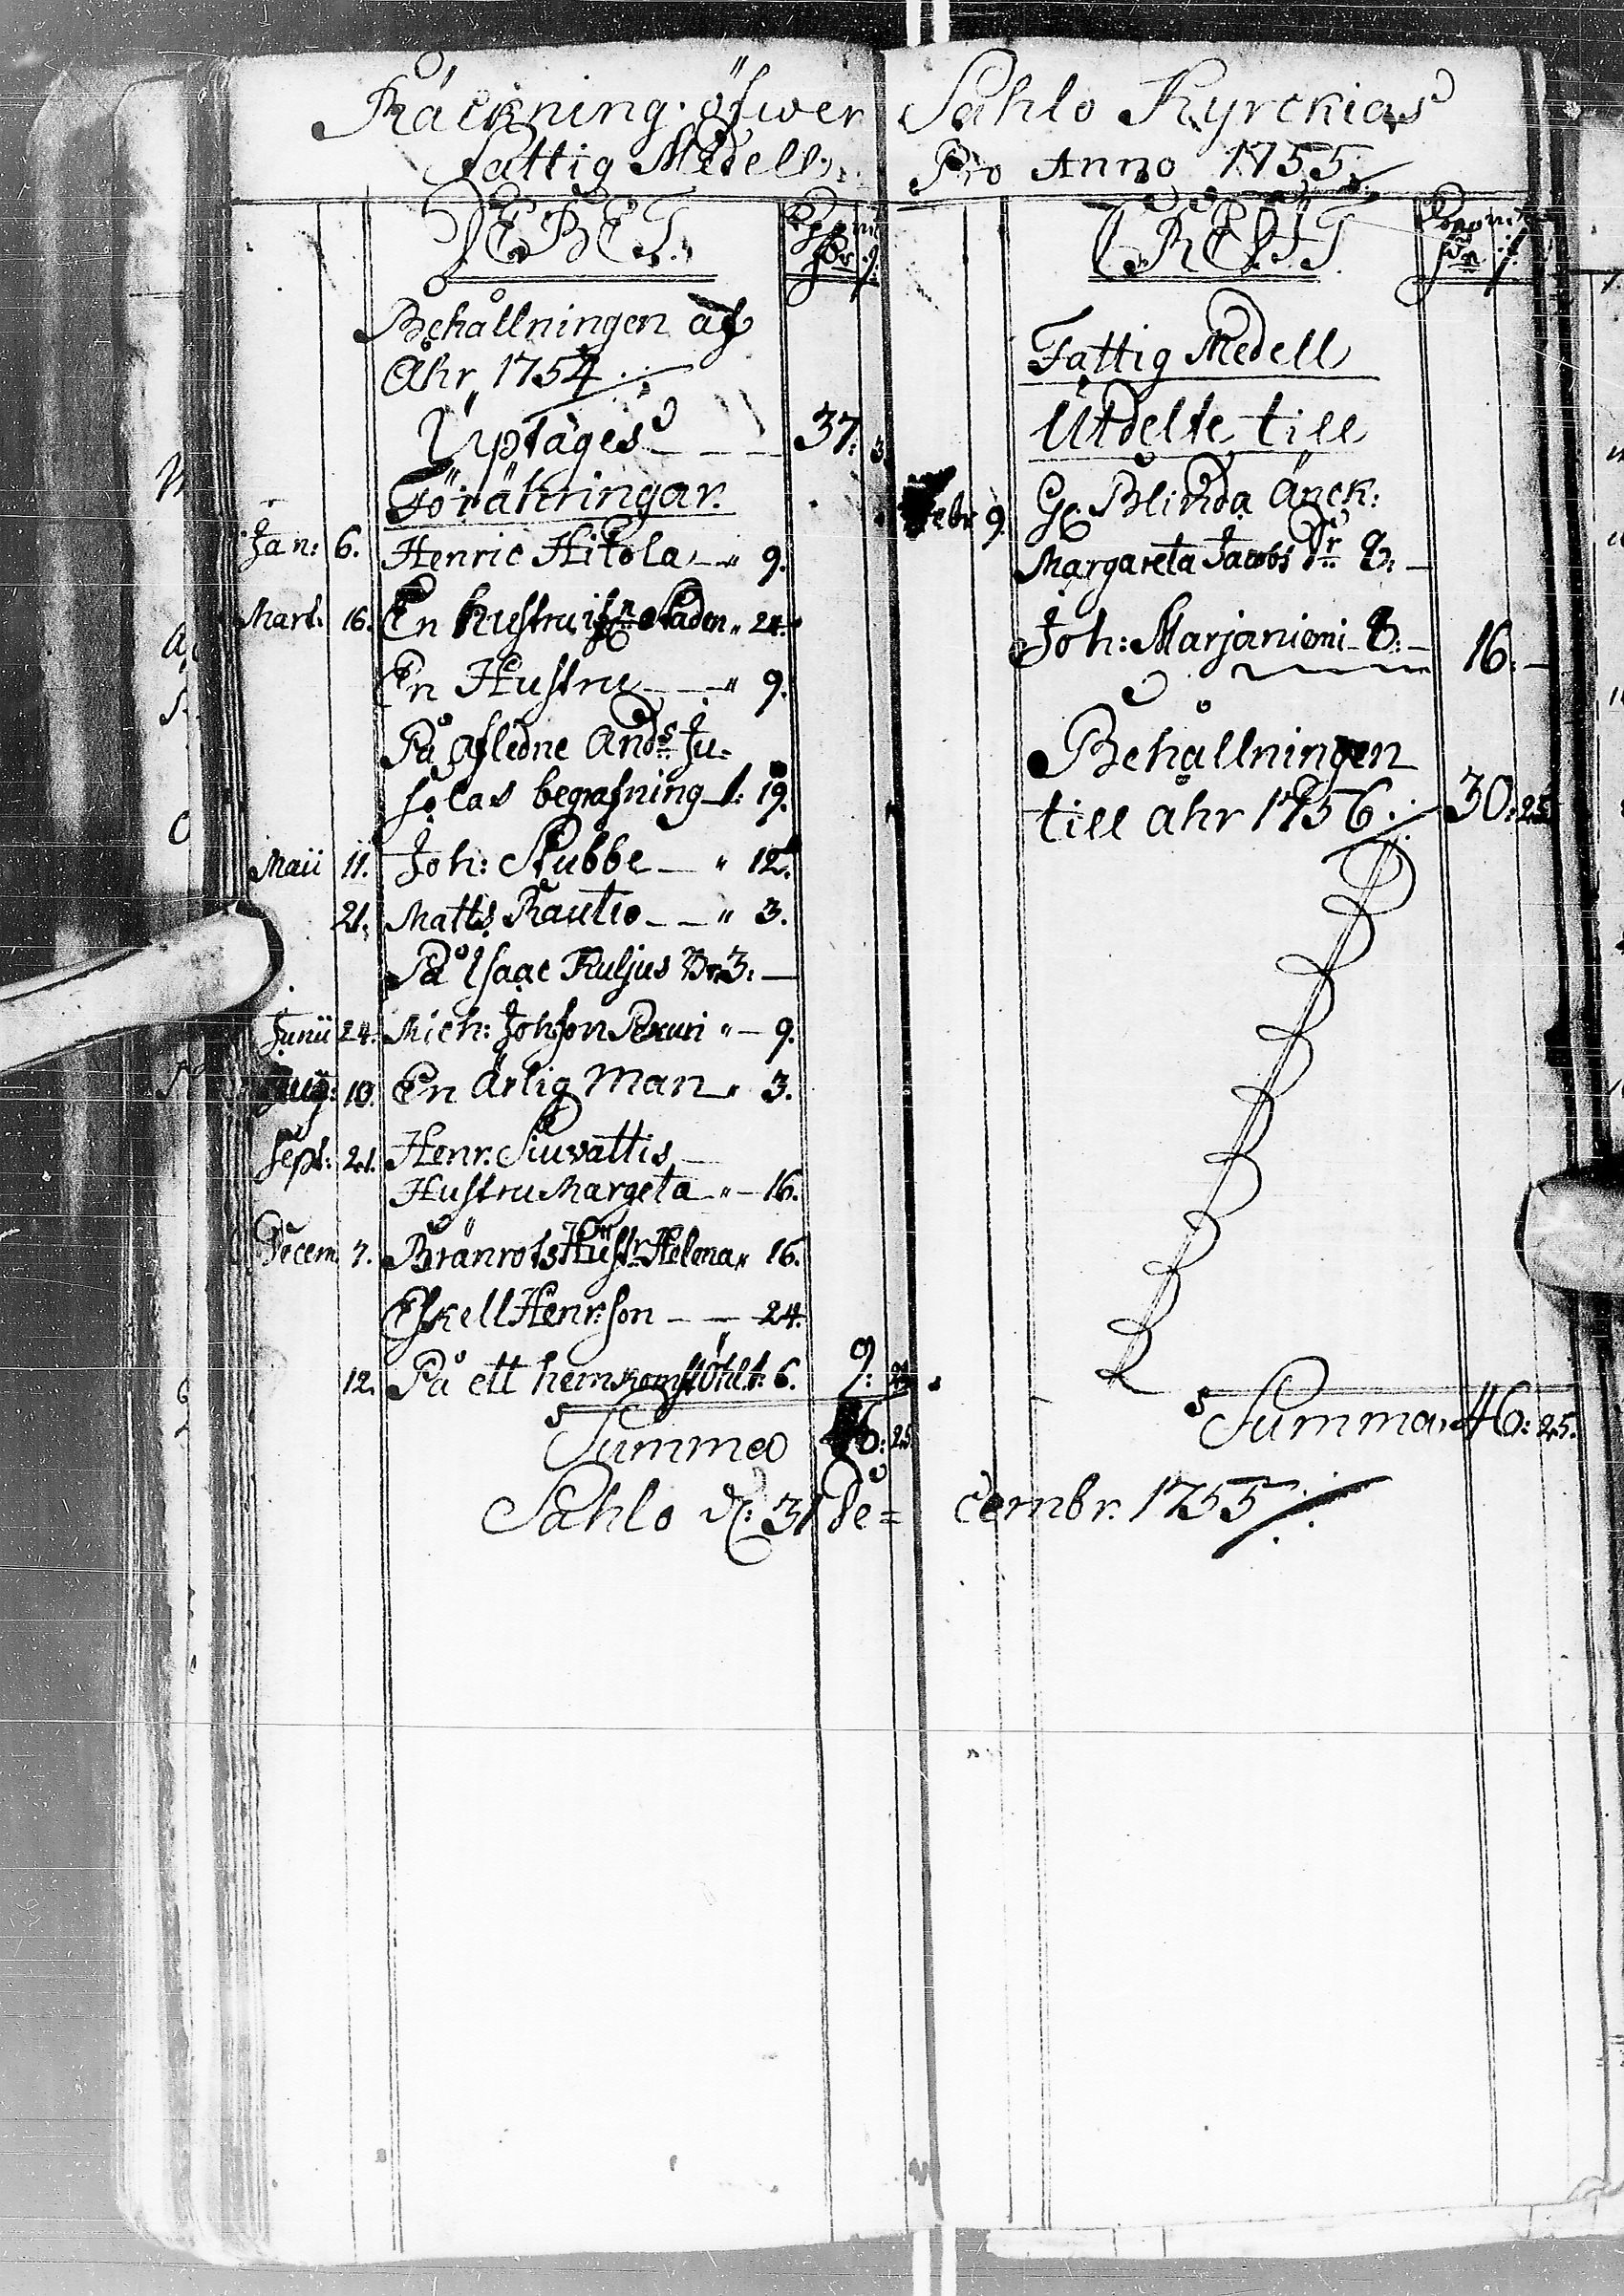 Räckning öfwer Sahlo Kyrckias
fattig Medell. Pro Anno 1755.
DEBET.
Behållningen af
Åhr 1754.
Uptages 37: 3.
Förährningar.
Jan: 6. Henric Hitola " 9.
Mart: 16. En hustru ifrn Staden " 24.
En Hustru " 9.
På afledne Ands Ju-
solas begrafning 1: 19.
Maii 11. Joh: Stubbe " 12.
21. Matts Rautio " 3.
På Isaac Kuljus Br. 3: —
Junii 24. Mich: Johsson " 9.
Aug: 10. En Ärlig Man " 3.
Sept: 21. Henr. Siuvattis
Hustru Margeta " 16.
Decem. 7. Bränrots Hustr Helena " 16.
Eskell Henrson 24.
12. På ett hemkomst Öhl t: 6. 9:
Summa 46: 25.
CREDIT
Fattig Medell
Utdelte till
Febr 9. Gl. Blinda Änck:
Margareta Jacobs Dr 8: —
Joh: Marjaniemi 8: — 16: —
Behållningen
till åhr 1756. 30: 25.
Summa 46: 25.
Sahlo d: 31 De= cembr. 1755